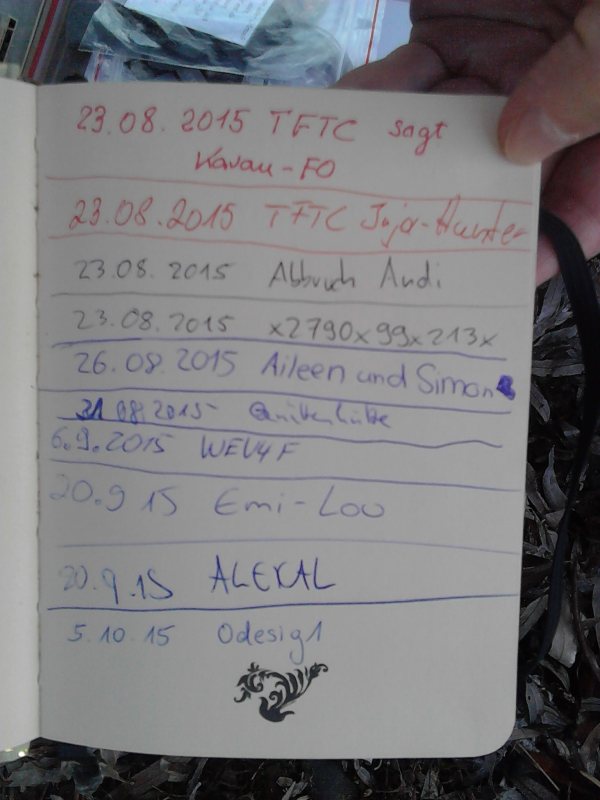 23.08.2015 TFTC sagt
Kavau-FO
23.08.2015 TFTC Jajo-Hunter
23.08.2015 Abbruch Andi
23.08.2015 x2790x99x213x
26.08.2015 Aileen und Simon
31.08.2015
6.9.2015 WEV4F
20.9 15 Emi-Lou
20.9.15 ALEKAL
5.10.15 Odesig1